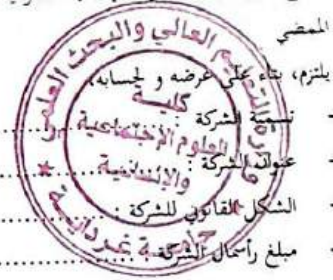 الممضي
يلتزم، بناء على عرضه و لحسابه،
- تسمية الشركة :
- عنوان الشركة :
- الشكل القانوني للشركة :
- مبلغ رأسمال الشركة :
وزارة التعليم العالي والبحث العلمي
كلية
العلوم الإجتماعية
والإنسانية
جامعة غرداية